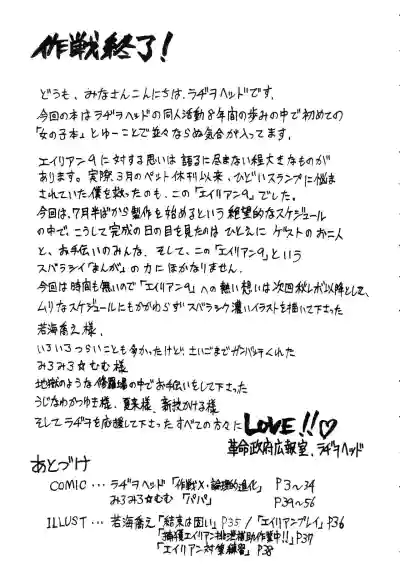 作戦終了!
どうも、みなさんこんにちは、ラヂヲヘッドです。
今回の本はラヂヲヘッドの同人活動8年間の歩みの中で初めての
「女の子本」とゆーことで並々ならぬ気合が入ってます。
エイリアン9に対する思いは語るに尽きない程大きなものが
あります。実際3月のペット休刊以来、ひどいスランプに悩ま
されていた僕を救ったのも、この「エイリアン9」でした。
今回は、7月半ばから製作を始めるという絶望的なスケジュール
の中で、こうして完成の日の目を見たのはひとえにゲストのお二人
と、お手伝いのみんな、そして、この「エイリアン9」という
スバラシイ「まんが」の力にほかなりません。
今回は時間も無いので「エイリアン9」への熱い想いは次回秋レボ以降として、
ムリなスケジュールにもかかわらずスバラシク濃いイラストを描いて下さった
若海喬え様、
いろいろつらいことも多かったけど、さいごまでガンバッてくれた
みるみる☆むむ様
地獄のような修羅場の中でお手伝いをして下さった
うじなわかつゆき様、夏来様、新技かける様
そしてラヂヲを応援して下さったすべての方々にLOVE!!♡
革命政府広報室、ラヂヲヘッド
あとづけ
COMIC… ラヂヲヘッド「作戦X・論理的進化」 P3〜34
みるみる☆むむ「パパ」 P39〜56
ILLUST… 若海喬え「結束は固い」P35/「エイリアンプレイ」P36
「捕獲エイリアン排泄補助作業中!!」P37
「エイリアン対策練習」P38